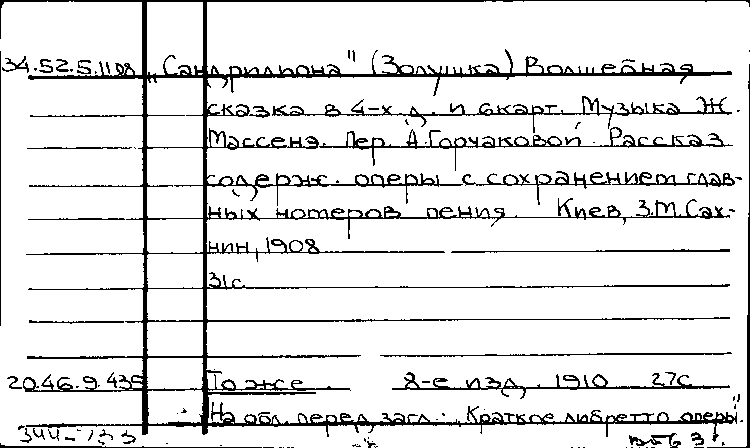 34.52.5.1108 „Сандрильона" (Золушка) Волшебная
сказка в 4-х д. и 6 карт. Музыка Ж.
Массенэ. Пер. А. Горчаковой. Рассказ
содерж. оперы с сохранением глав-
ных номеров пения. Киев, З.М. Сах-
нин, 1908
31с
20.46.9.435 То же. 2-е изд. 1910 27с
На обл. перед загл.: „Краткое либретто оперы".